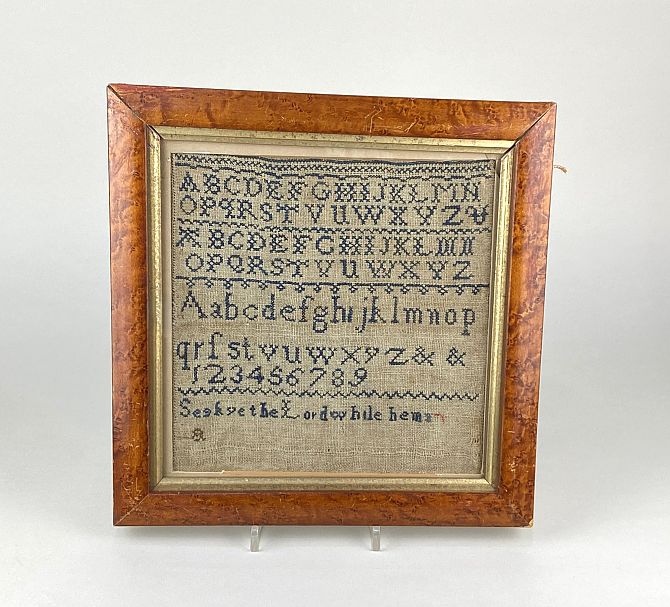 ABCDEFGHIJKLMN
OPQRSTVUWXYZ
ABCDEFGHIJKLMN
OPQRSTVUWXYZ
Aabcdefghijklmnop
qrſstvuwxyz&&
123456789
Seekye the Lord while hema